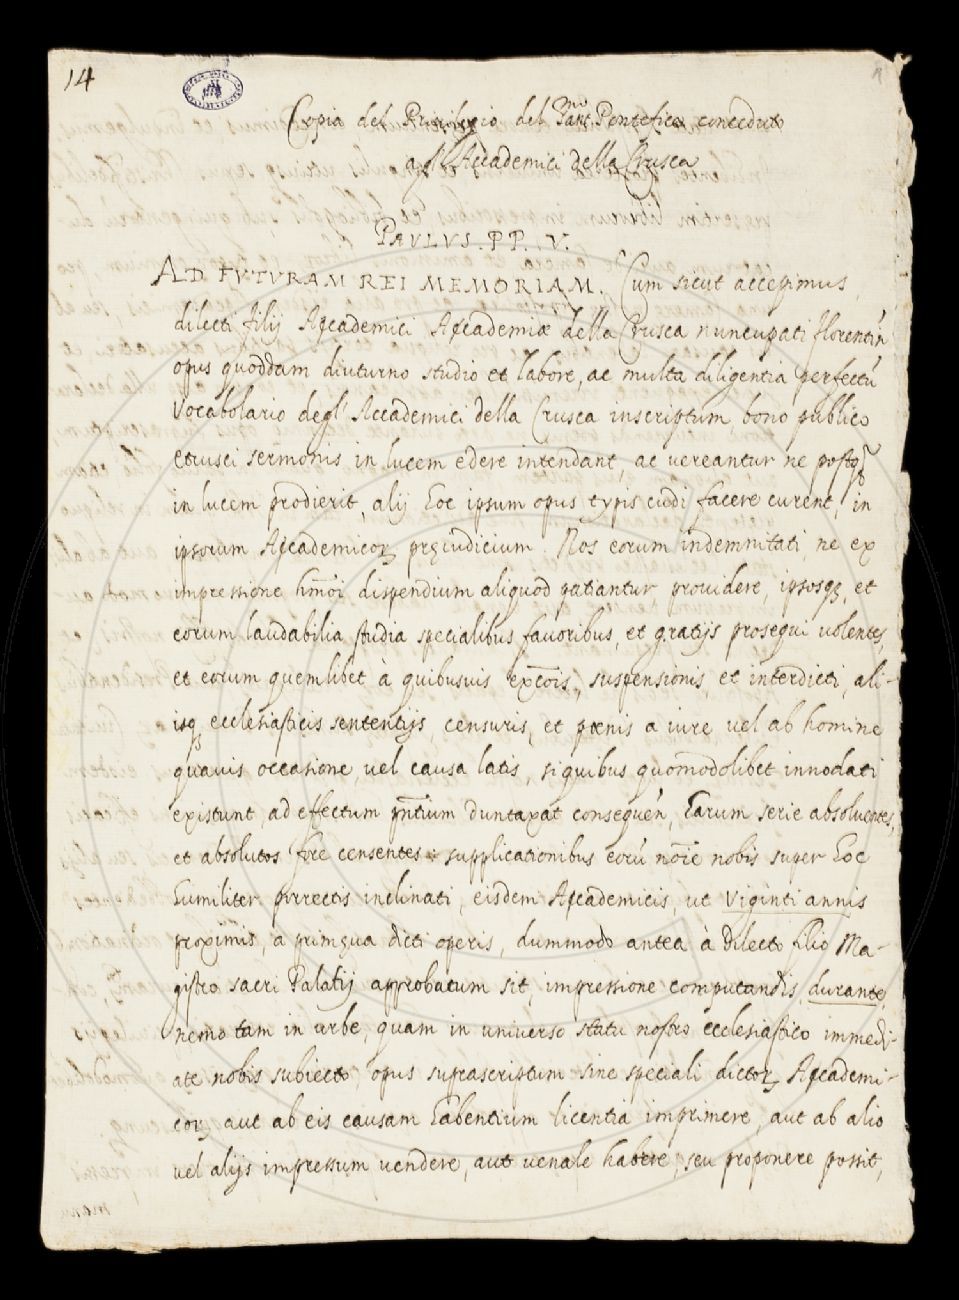 14
Copia del Priuilegio del Sant.mo Pontefice conceduto
agl'Accademici della Crusca
PAVLVS. PP. V.
AD FVTVRAM REI MEMORIAM. Cum sicut accepimus,
dilecti filij Accademici Accademiæ della Crusca nuncupati florentiñ
opus quoddam diuturno studio et labore, ac multa diligentia perfectũ
Vocabolario degl'Accademici della Crusca inscriptum bono publico
etiusci sermonis in lucem edere intendant, ac uereantur ne postq̃
in lucem prodierit, alij hoc ipsum opus typis cudi facere curent, in
ipsorum Accademicoꝝ pręiudicium. Nos eorum indemnitati, ne ex
impressione hm̃oi dispendium aliquod patiantur prouidere, ipsosqꝫ, et
eorum laudabilia studia specialibus fauoribus, et gratijs prosequi uolentes,
et eorum quemlibet à quibusuis exc̃ois, suspensionis, et interdicti, ali-
isqꝫ ecclesiasticis sententijs censuris, et pœnis a iure uel ab homine
quauis occasione, uel causa latis, siquibus quomodolibet innodati
existunt, ad effectum pñtium duntaxat consequeñ, harum serie absoluentes,
et absolutos fore censentes supplicationibus eorũ nõie nobis super hoc
humiliter porrectis inclinati, eisdem Accademicis, ut Viginti annis
proximis, a primęua dicti operis, dummodo antea à Dilecto filio Ma-
gistro sacri Palatij approbatum sit, impressione computandis, durante,
nemo tam in urbe, quam in uniuerso statu nostro ecclesiastico immedi-
ate nobis subiecto, opus suprascriptum sine speciali dictoꝝ Accademi-
coꝝ aut ab eis causam habentium licentia imprimere, aut ab alio
uel alijs impressum uendere, aut uenale habere, seu proponere possit,